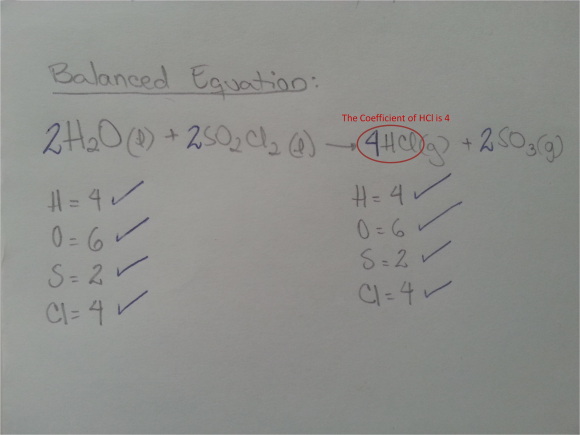 Balanced Equation:
The Coefficient of HCl is 4
2H₂O(l) + 2SO₂Cl₂(l) → 4HCl(g) + 2SO₃(g)
H = 4 ✓
O = 6 ✓
S = 2 ✓
Cl = 4 ✓
H = 4 ✓
O = 6 ✓
S = 2 ✓
Cl = 4 ✓